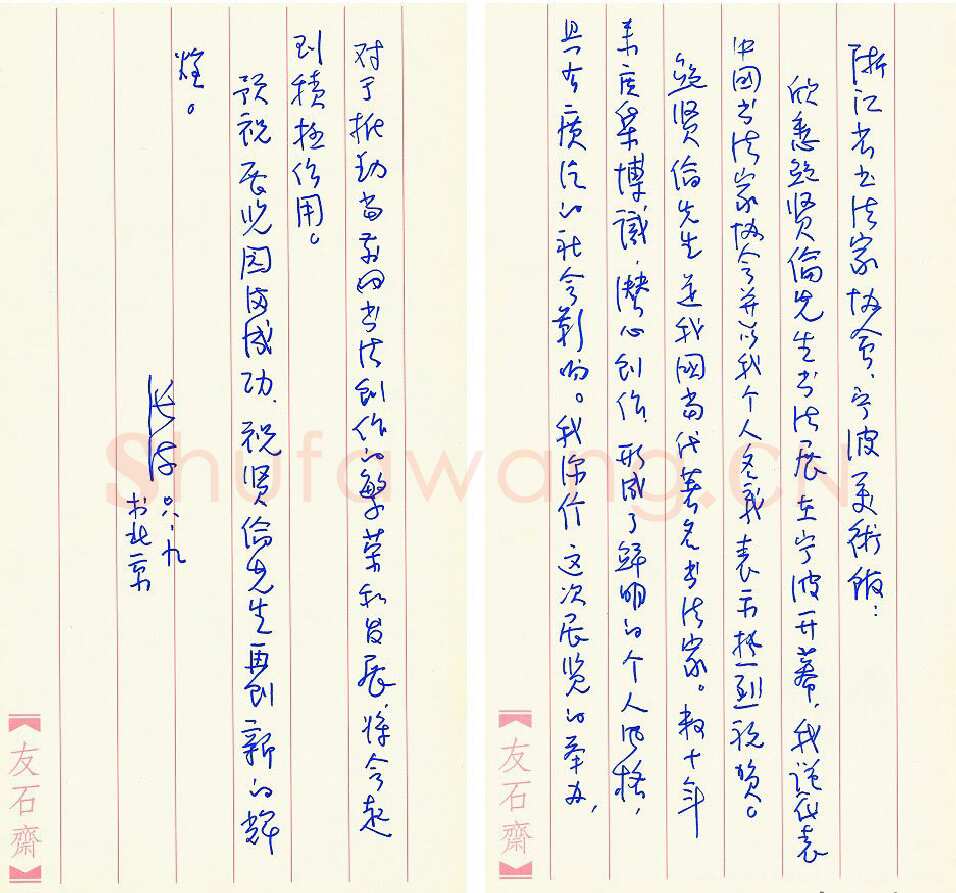 浙江省书法家协会、宁波美術館：
欣悉鲍贤倫先生书法展在宁波开幕，我谨代表
中國书法家协会并以我个人名義表示热烈祝贺。
鲍贤倫先生是我國当代著名书法家。数十年
来广渠博識，潜心创作，形成了鲜明的个人风格，
具有廣泛的社会影响。我深信这次展览的举办，
对于推動当前的书法创作的繁荣和发展，将会起
到積极作用。
预祝展览圆满成功，祝贤倫先生再创新的辉
煌。
张海
八·九
于北京
友石齋
友石齋
Shufawang.CN